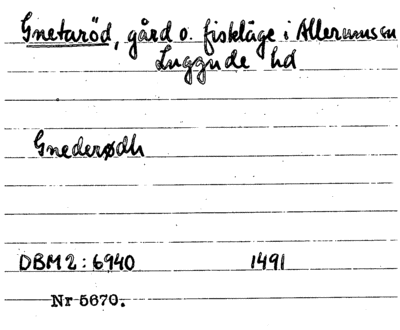 Gnetaröd, gård o. fiskläge i Allerums sn
Luggude hd
Gnederødh
DBM 2: 6940 1491
Nr 5670.